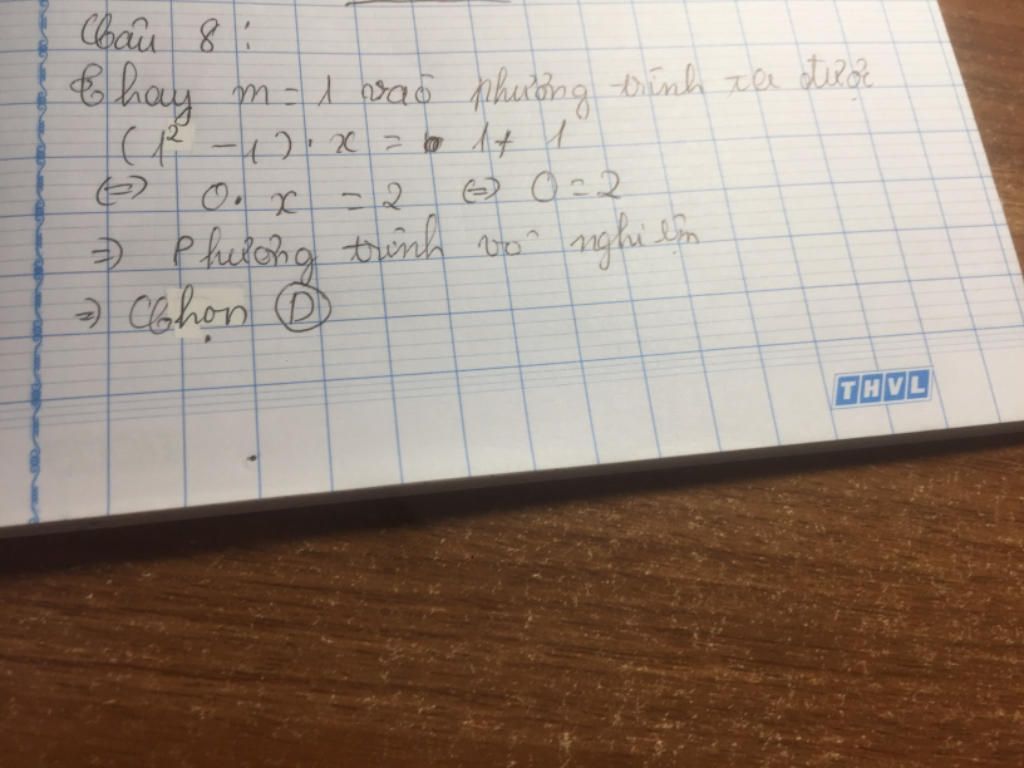 Câu 8 :
Thay m = 1 vào phương trình ta được
(1² - 1) . x = 1 + 1
⇔ 0 . x = 2 ⇔ 0 = 2
⇒ Phương trình vô nghiệm
⇒ Chọn D
THVL